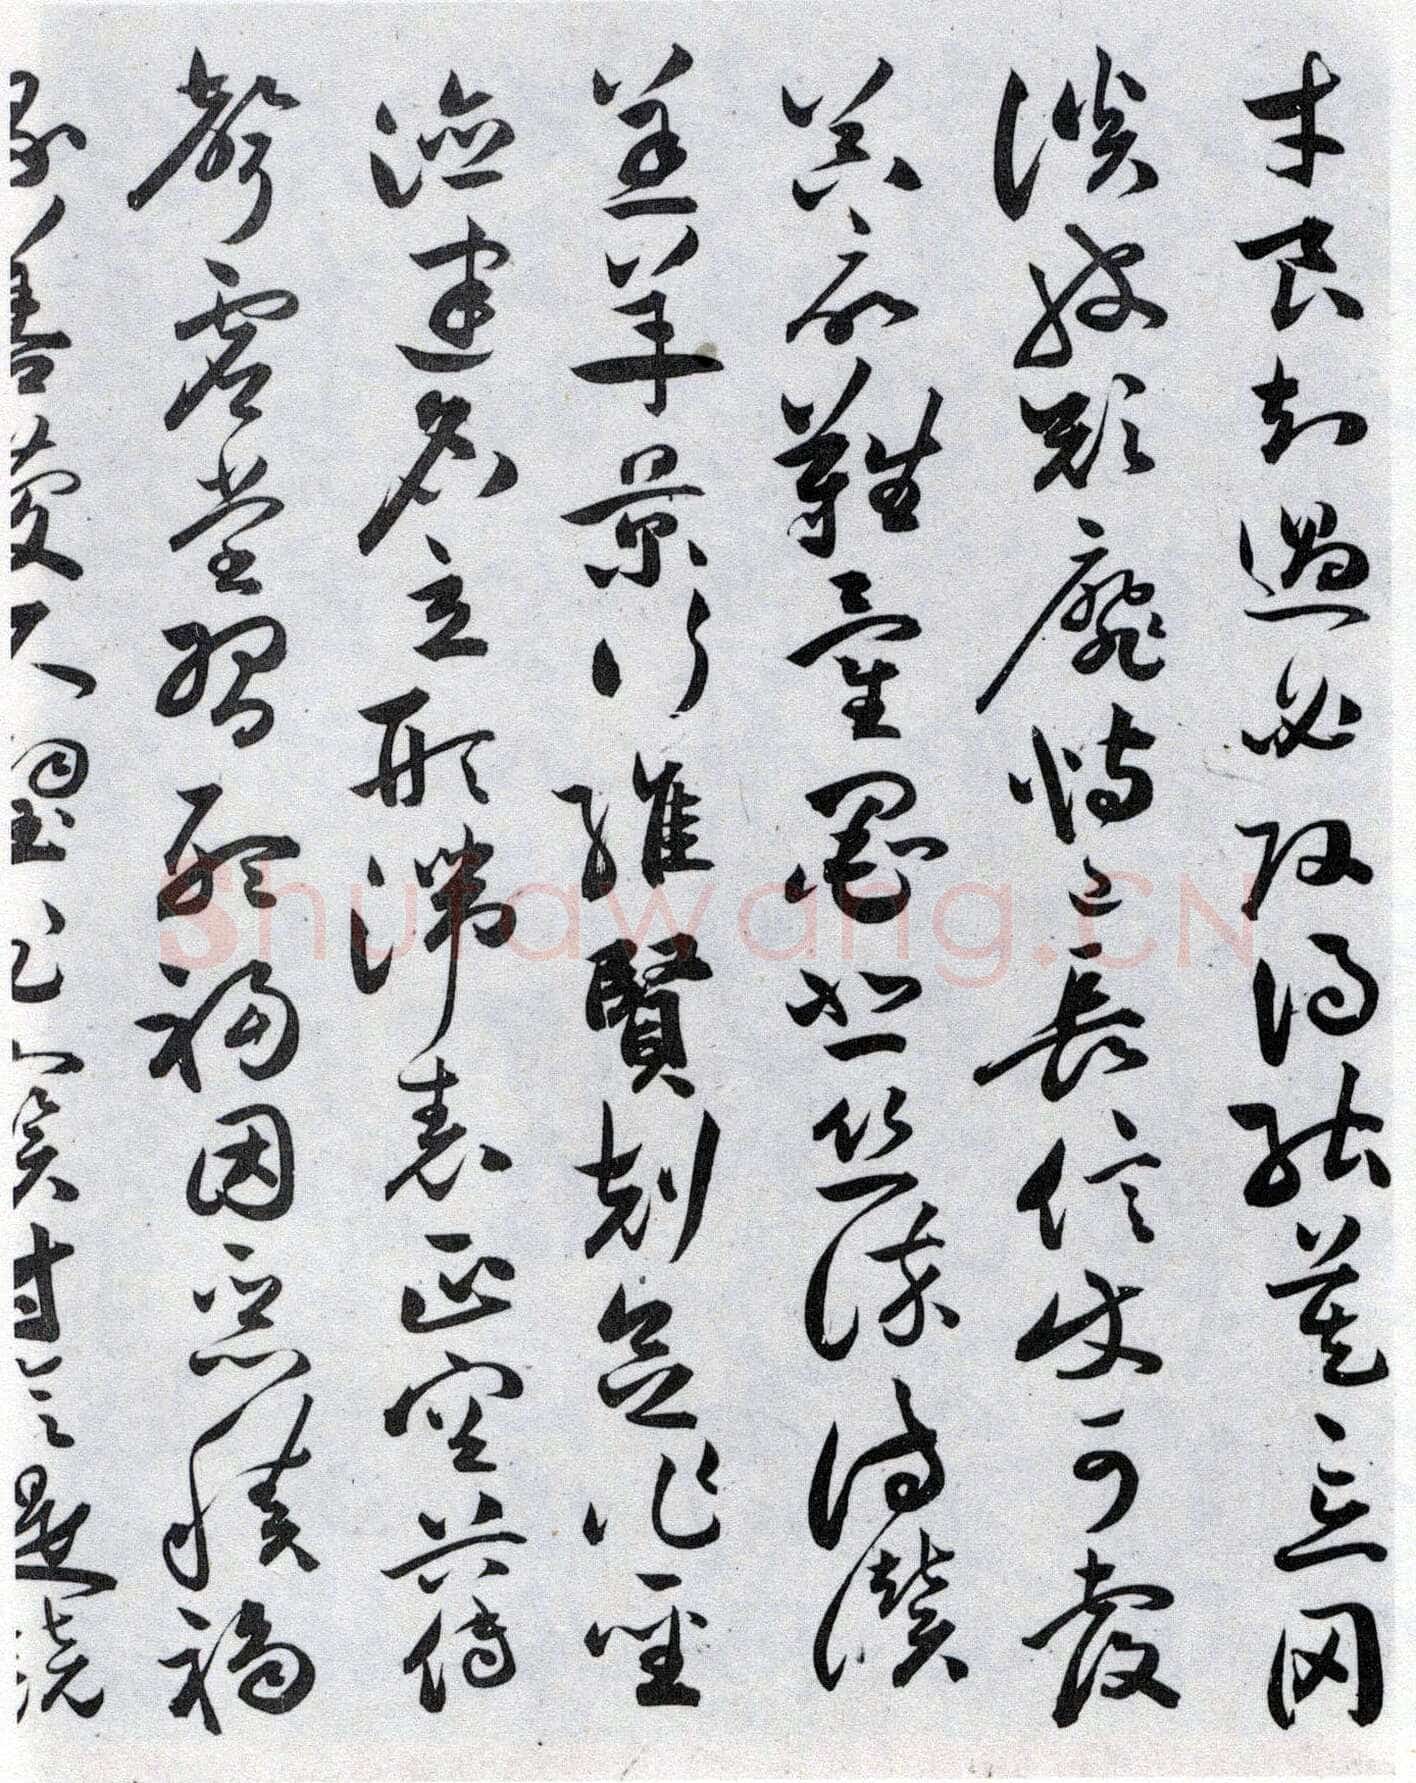 才良知過必改得能莫忘罔
談彼短靡恃己長信使可覆
器欲難量墨悲絲染詩讚
羔羊景行維賢剋念作聖
德建名立形端表正空谷傳
聲虛堂習聽禍因惡積福
緣善慶尺璧非寶寸陰是競
Shufawang.CN